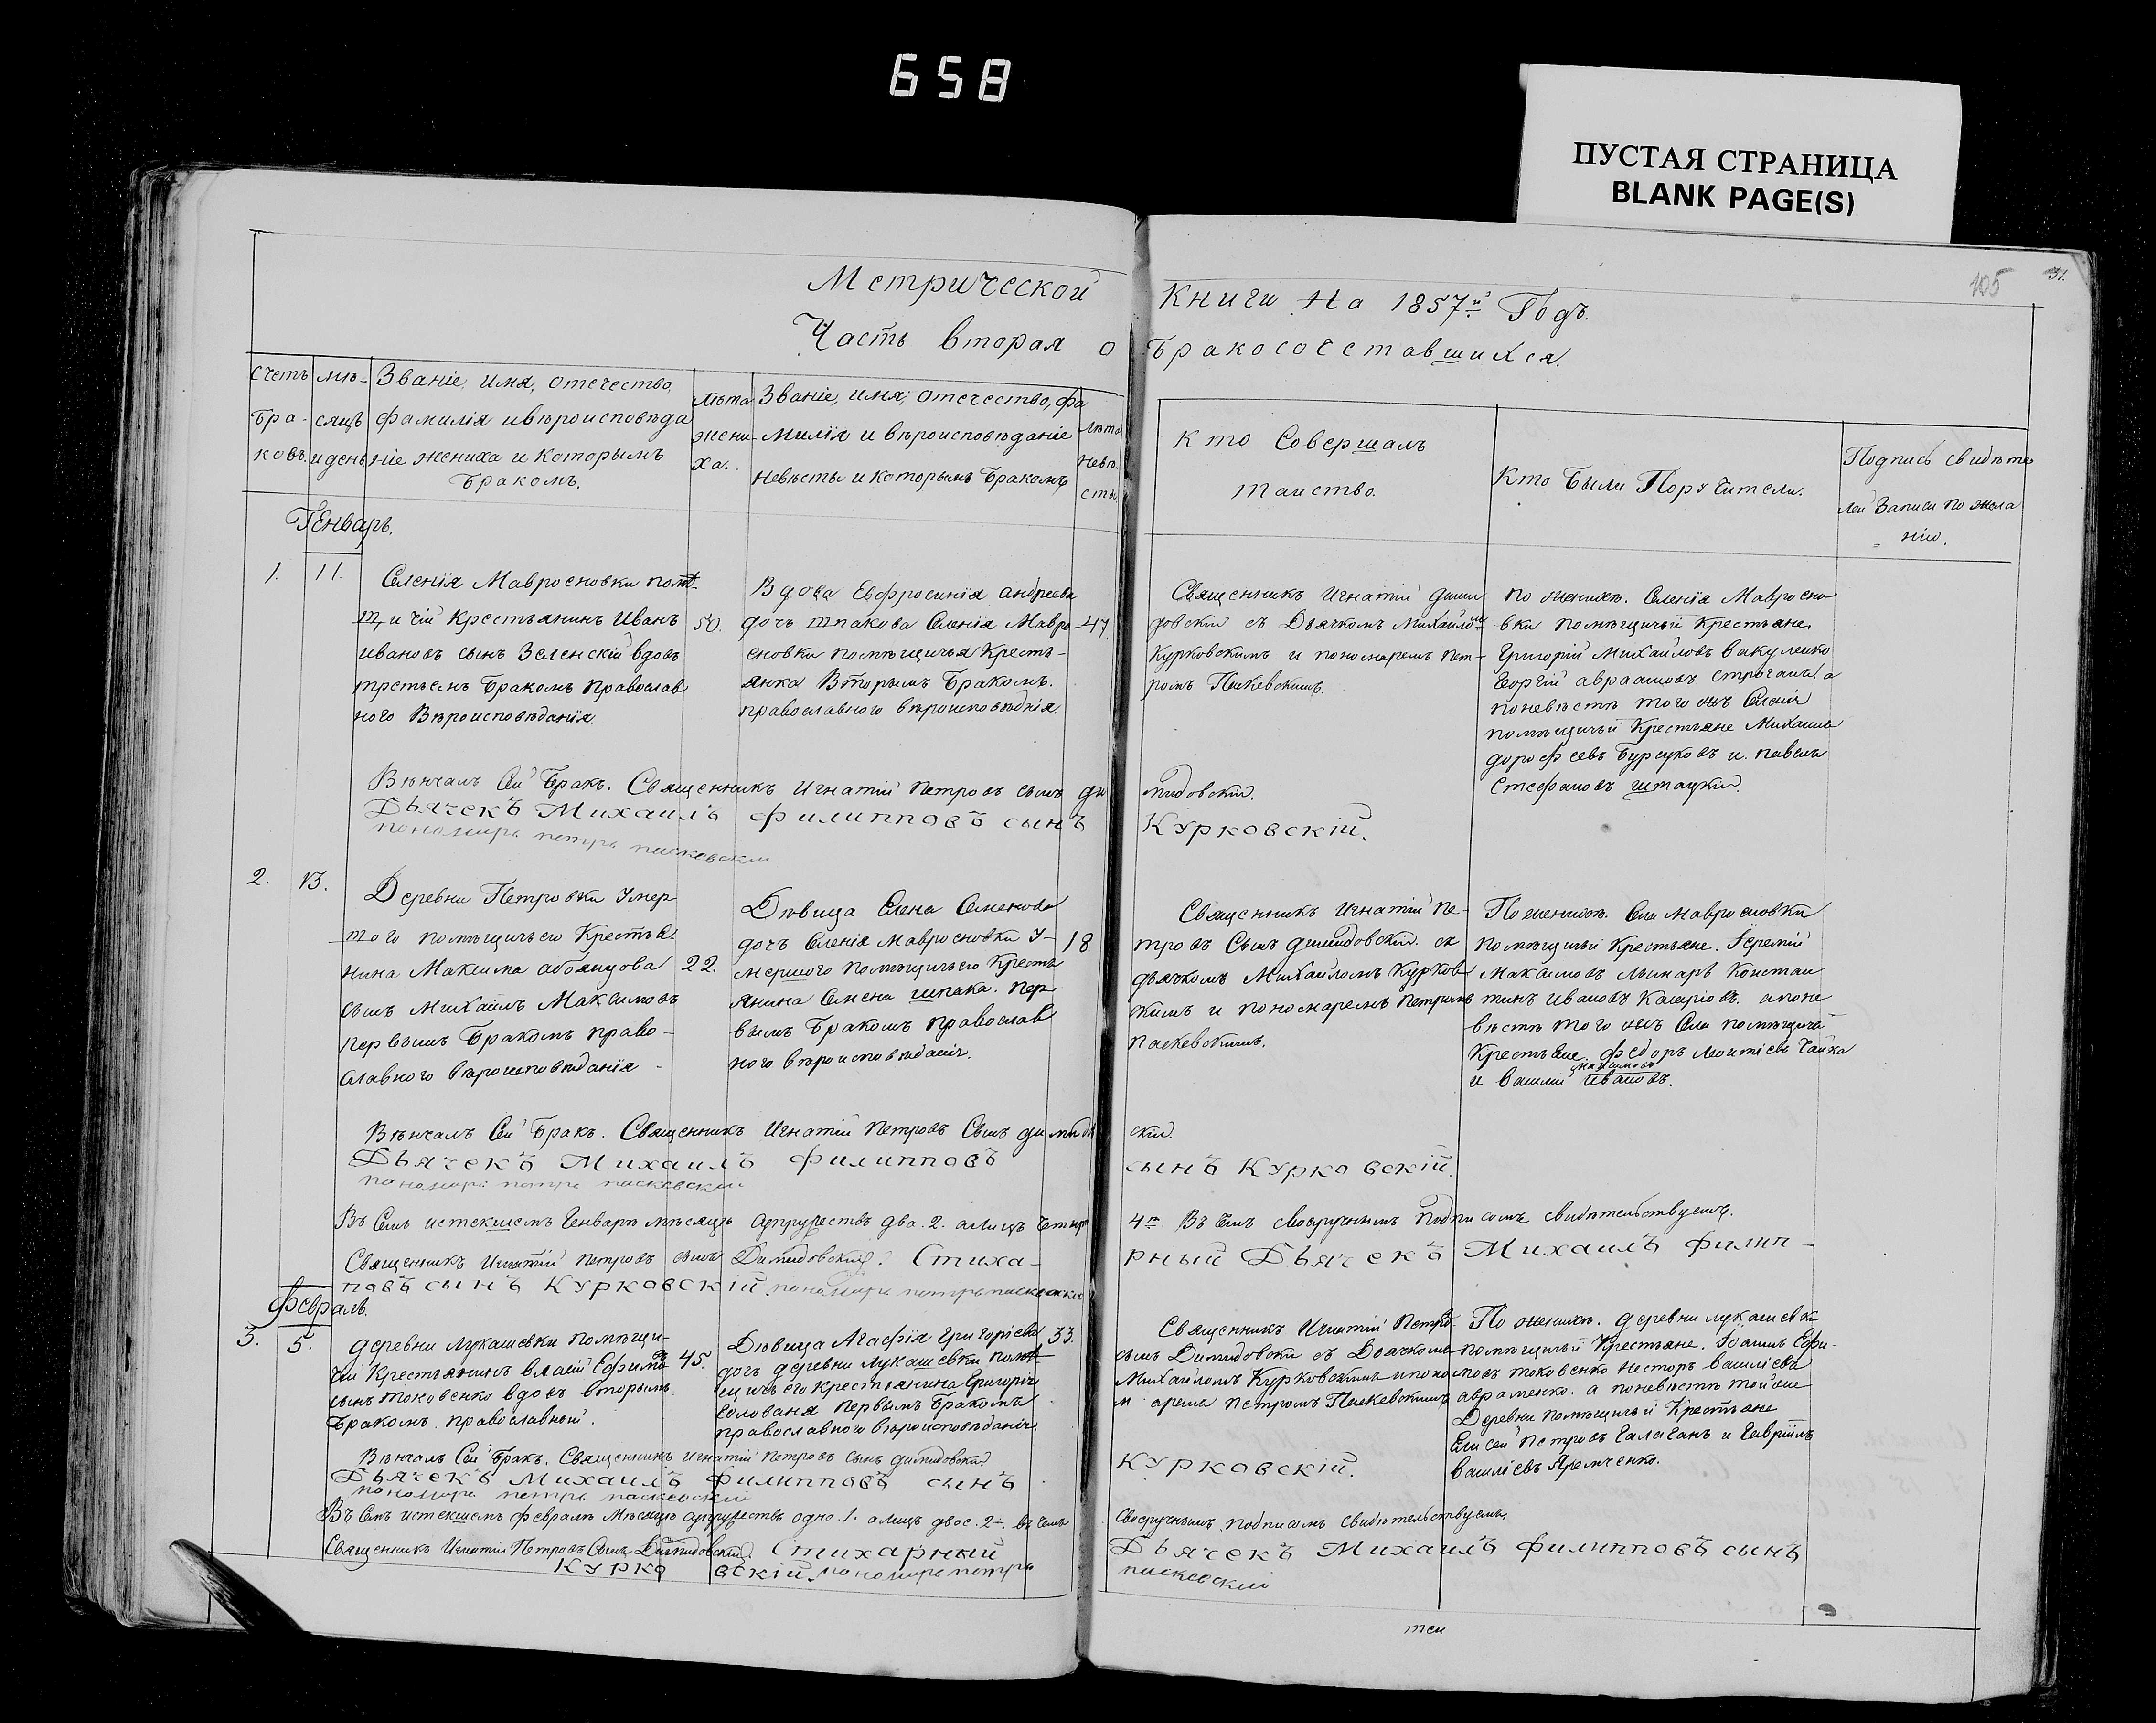 658
ПУСТАЯ СТРАНИЦА
BLANK PAGE(S)
105
31.
Метрической Книги На 1857й Годъ.
Часть вторая о бракосочетавшихся.
Счетъ бра-ковъ.
мѣ-сяцъ и день
Званіе, имя, отечество,
фамилія и вѣроисповѣда
ніе жениха и Которымъ
бракомъ.
лѣта
жени-
ха.
Званіе, имя, отечество, фа
милія и вѣроисповѣданіе
невѣсты и которымъ бракомъ
Лѣта
невѣ.
сты
Кто Совершалъ
таинство.
Кто были Поручители.
Подпись свидѣте
лей Записи по жела
нію.
Генварь.
1.
11.
Селенія Мавросновки помѣ-
щичій Крестьянинъ Иванъ
Ивановъ сынъ Зеленскій вдовъ
третьемъ бракомъ православ
ного вѣроисповѣданія.
50.
Вдова Евфросинія Андреева
дочь Шпакова Селенія Мавро-
сновки помѣщичья Кресть-
янка вторымъ бракомъ.
православного вѣроисповѣднія.
47.
Священникъ Игнатій Дими
довскій съ Дьячкомъ Михаиломъ
Курковскимъ и пономаремъ Пет-
ромъ Паскевскимъ.
по женихѣ. Селенія Мавросно
вки помѣщичьи Крестьяне,
Григорій Михаиловъ Вакуленко
Георгій Авраамовъ а
поневѣстѣ того жъ Селенія
помѣщичьи Крестьяне Михаилъ
дорофеевъ Бурцковъ и. павелъ
Стефановъ штацкій.
Вѣнчалъ Сей бракъ. Священникъ Игнатій Петровъ сынъ Димидовскій.
Дьячекъ Михаилъ Филипповъ сынъ Курковскій.
пономарь петръ паскевский
2.
13.
Деревни Петровки Умер
шого помѣщичьего Крестья
нина Максима сынъ Михаилъ Максимовъ
первымъ бракомъ право-
славного вѣроисповѣданія
22.
Дѣвица Елена Семенова
дочь Селенія Мавросновки У-
мершого помѣщичьего Кресть
янина Семена шпака. пер
вымъ бракомъ православ
ного вѣроисповѣданія.
18
Священникъ Игнатій Пе-
тровъ Сынъ Димидовскій. съ
дьячкомъ Михаиломъ Курков
скимъ и пономаремъ Петромъ
Паскевскимъ.
По женихѣ. Села Мавросновки
помѣщичьи Крестьяне. Іеремій
Максимовъ Констан
тинъ Ивановъ апоне
вѣстѣ того жъ Села помѣщичьи
Крестьяне. федоръ Леонтіевъ Чайка
и василій Ивановъ.
Максимовъ
Вѣнчалъ Сей бракъ. Священникъ Игнатій Петровъ Сынъ Димидовскій.
Дьячекъ Михаилъ Филипповъ сынъ Курковскій.
пономарь петръ паскевский
Въ Семъ истекшемъ Генварѣ мѣсяцѣ супружествъ два. 2. алицъ четыре 4е. Въ чемъ своеручнымъ подписомъ свидѣтельствуемъ.
Священникъ Игнатій Петровъ сынъ Димидовскій. Стиха-рный Дьячекъ Михаилъ Филип-
повъ сынъ Курковскій. пономарь петръ паскевский
Февраль.
3.
5.
деревни Лукашевки помѣщи-
чій Крестьянинъ Власій Ефимовъ
сынъ Токовенко вдовъ вторымъ
бракомъ. православный.
45.
Дѣвица Агафія Григоріева
дочъ деревни Лукашевки помѣ-
щичьего крестьянина Григорія
Голована первымъ бракомъ
православного вѣроисповѣданія.
33.
Священникъ Игнатій Петровъ
сынъ Димидовскій съ Дьячкомъ
Михаиломъ Курковскимъ и поно
м арема петромъ Паскевскимъ
По женихѣ. деревни лукашевки
помѣщичьи Крестьяне. Іоаннъ Ефи-
мовъ токовенко Несторъ василіевъ
авраменко. а поневѣстѣ той же
Деревни помѣщичьи Крестьяне
Елисей петровъ Галаганъ и Гавріилъ
василіевъ Яремченко.
Вѣнчалъ Сей бракъ. Священникъ Игнатій Петровъ сынъ Димидовскій.
Дьячекъ Михаилъ Филипповъ сынъ Курковскій.
пономарь петръ паскевский
Въ Семъ истекшемъ февралѣ мѣсяцѣ супружествъ одно. 1. алицъ двое. 2. въ чемъ своеручнымъ подписомъ свидѣтельствуемъ.
Священникъ Игнатій Петровъ Сынъ Димидовскій. Стихарный Дьячекъ Михаилъ Филипповъ сынъ
Курковскій. пономарь петръ паскевский